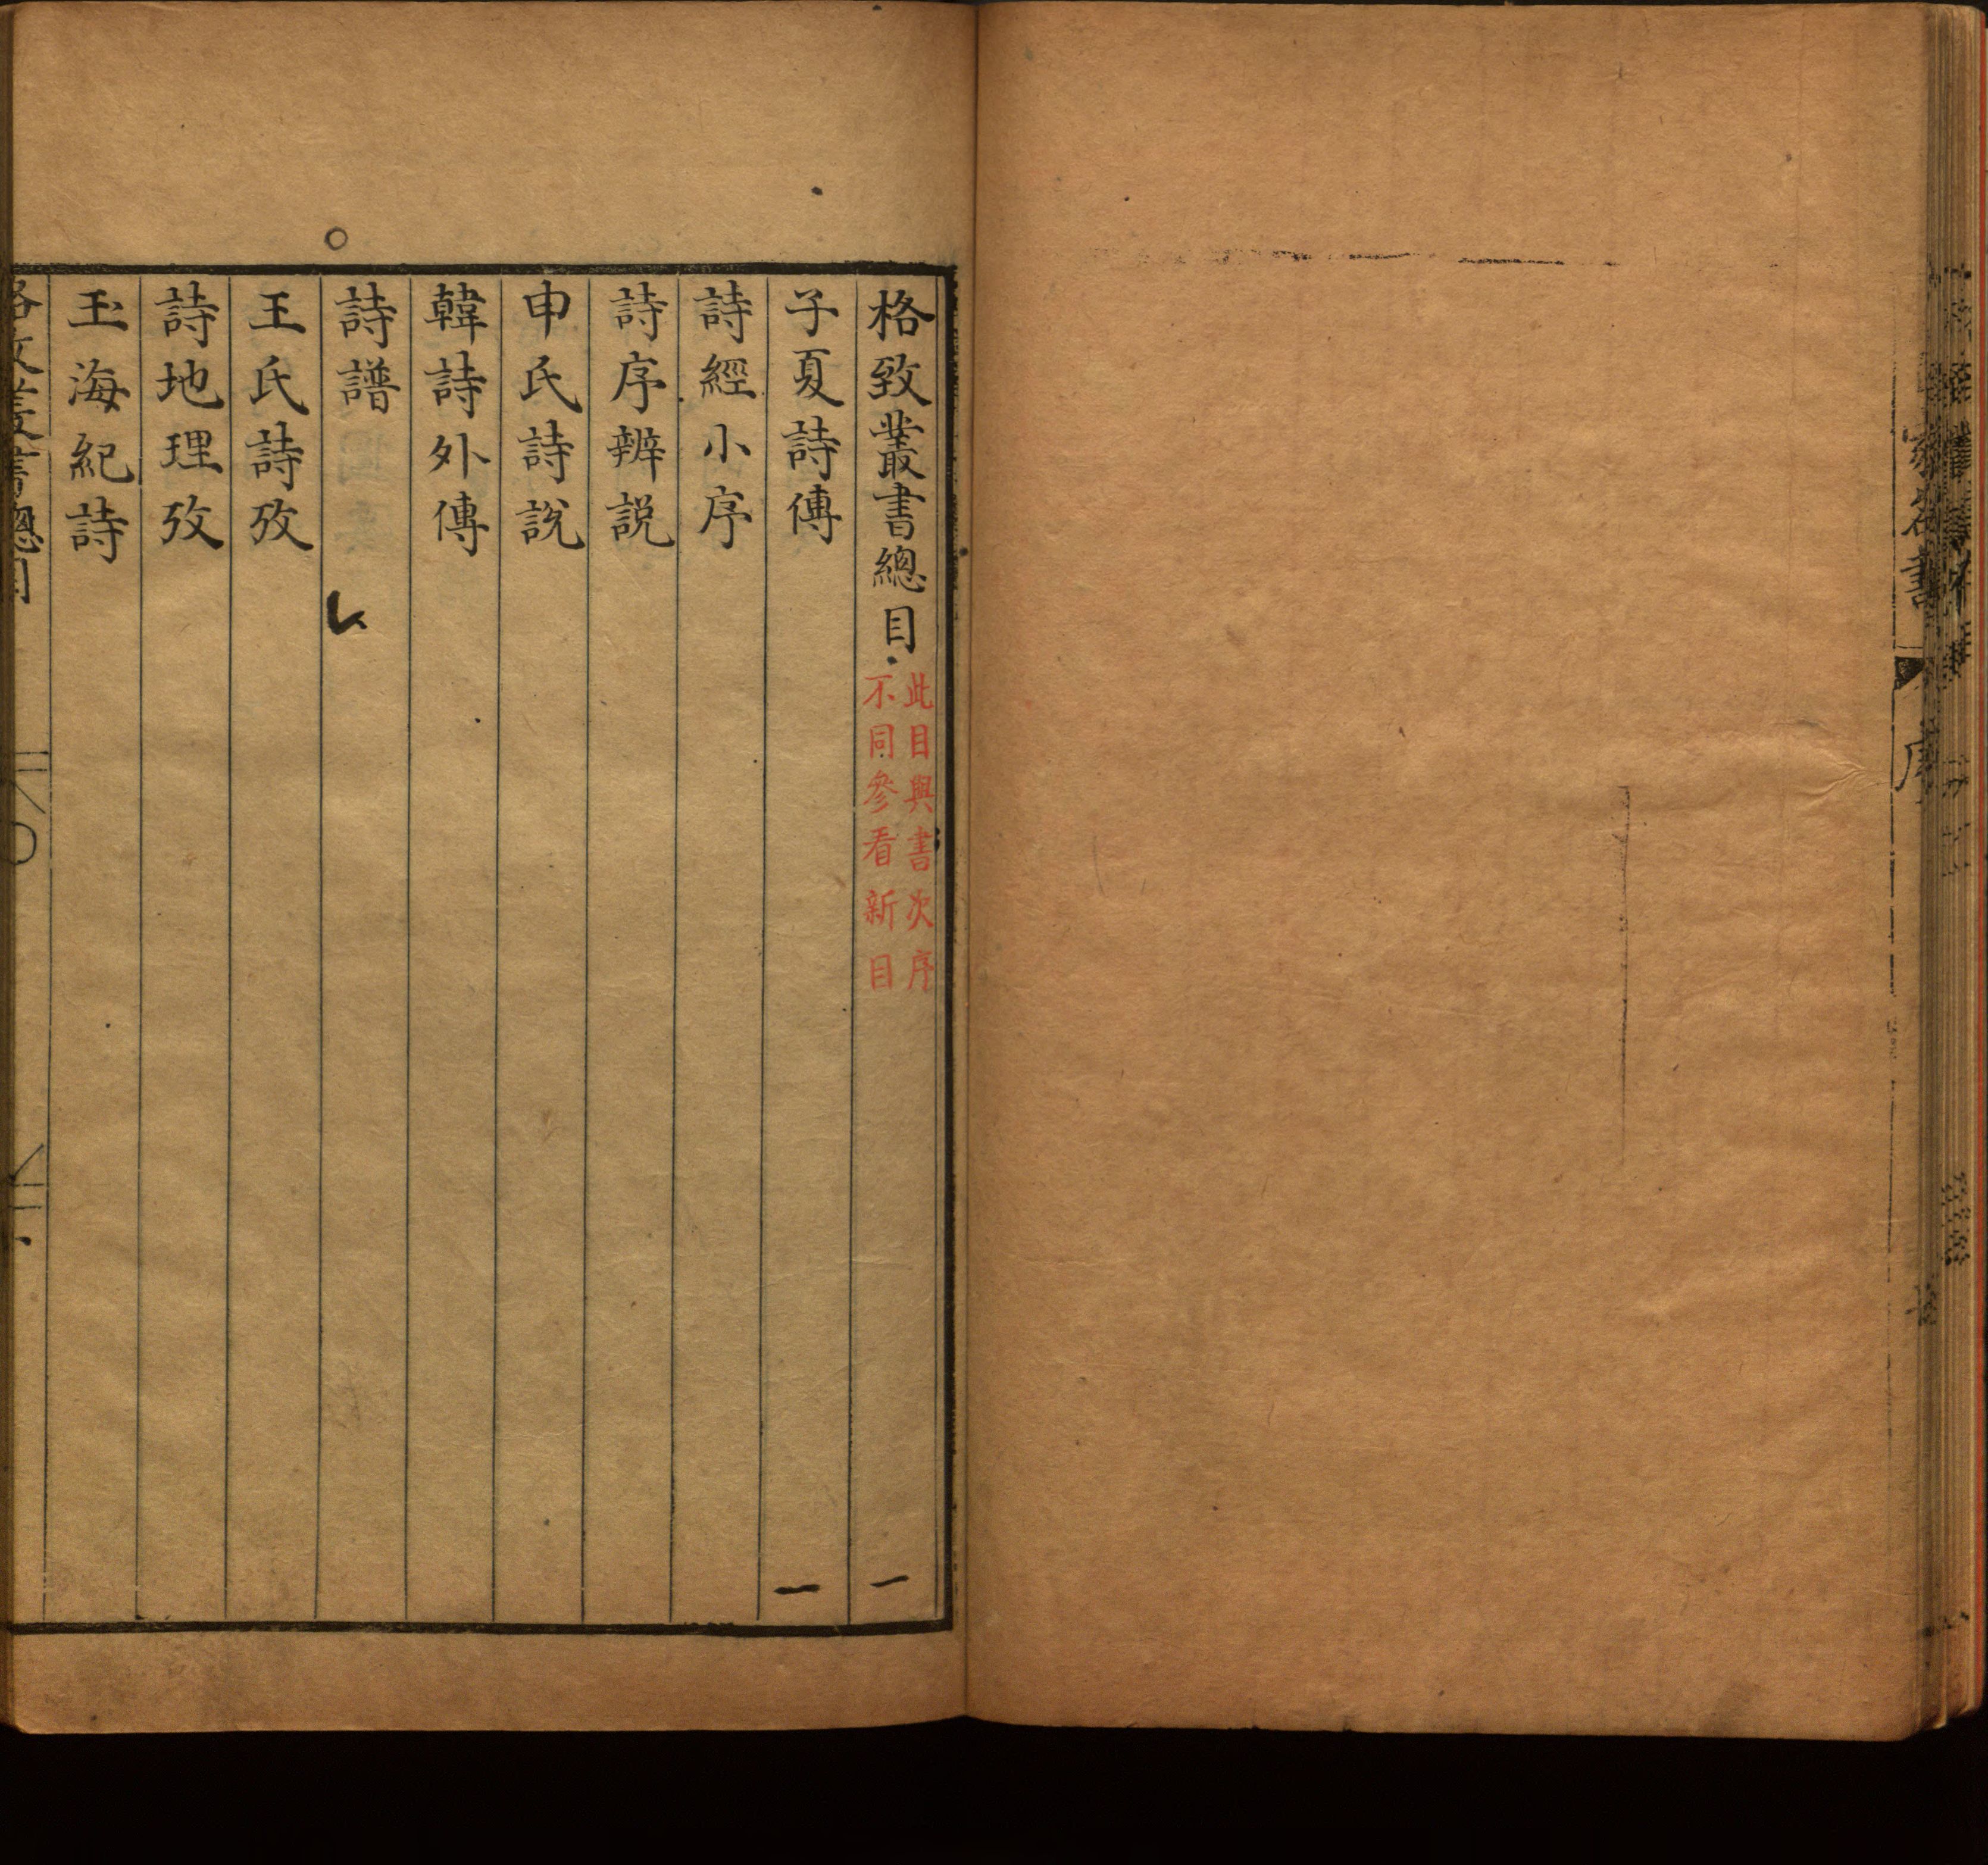 格致叢書總目
此目與書次序
不同參看新目
一
子夏詩傳
一
詩經小序
詩序辨説
申氏詩説
韓詩外傳
詩譜
王氏詩攷
詩地理攷
玉海紀詩
格致叢書總目